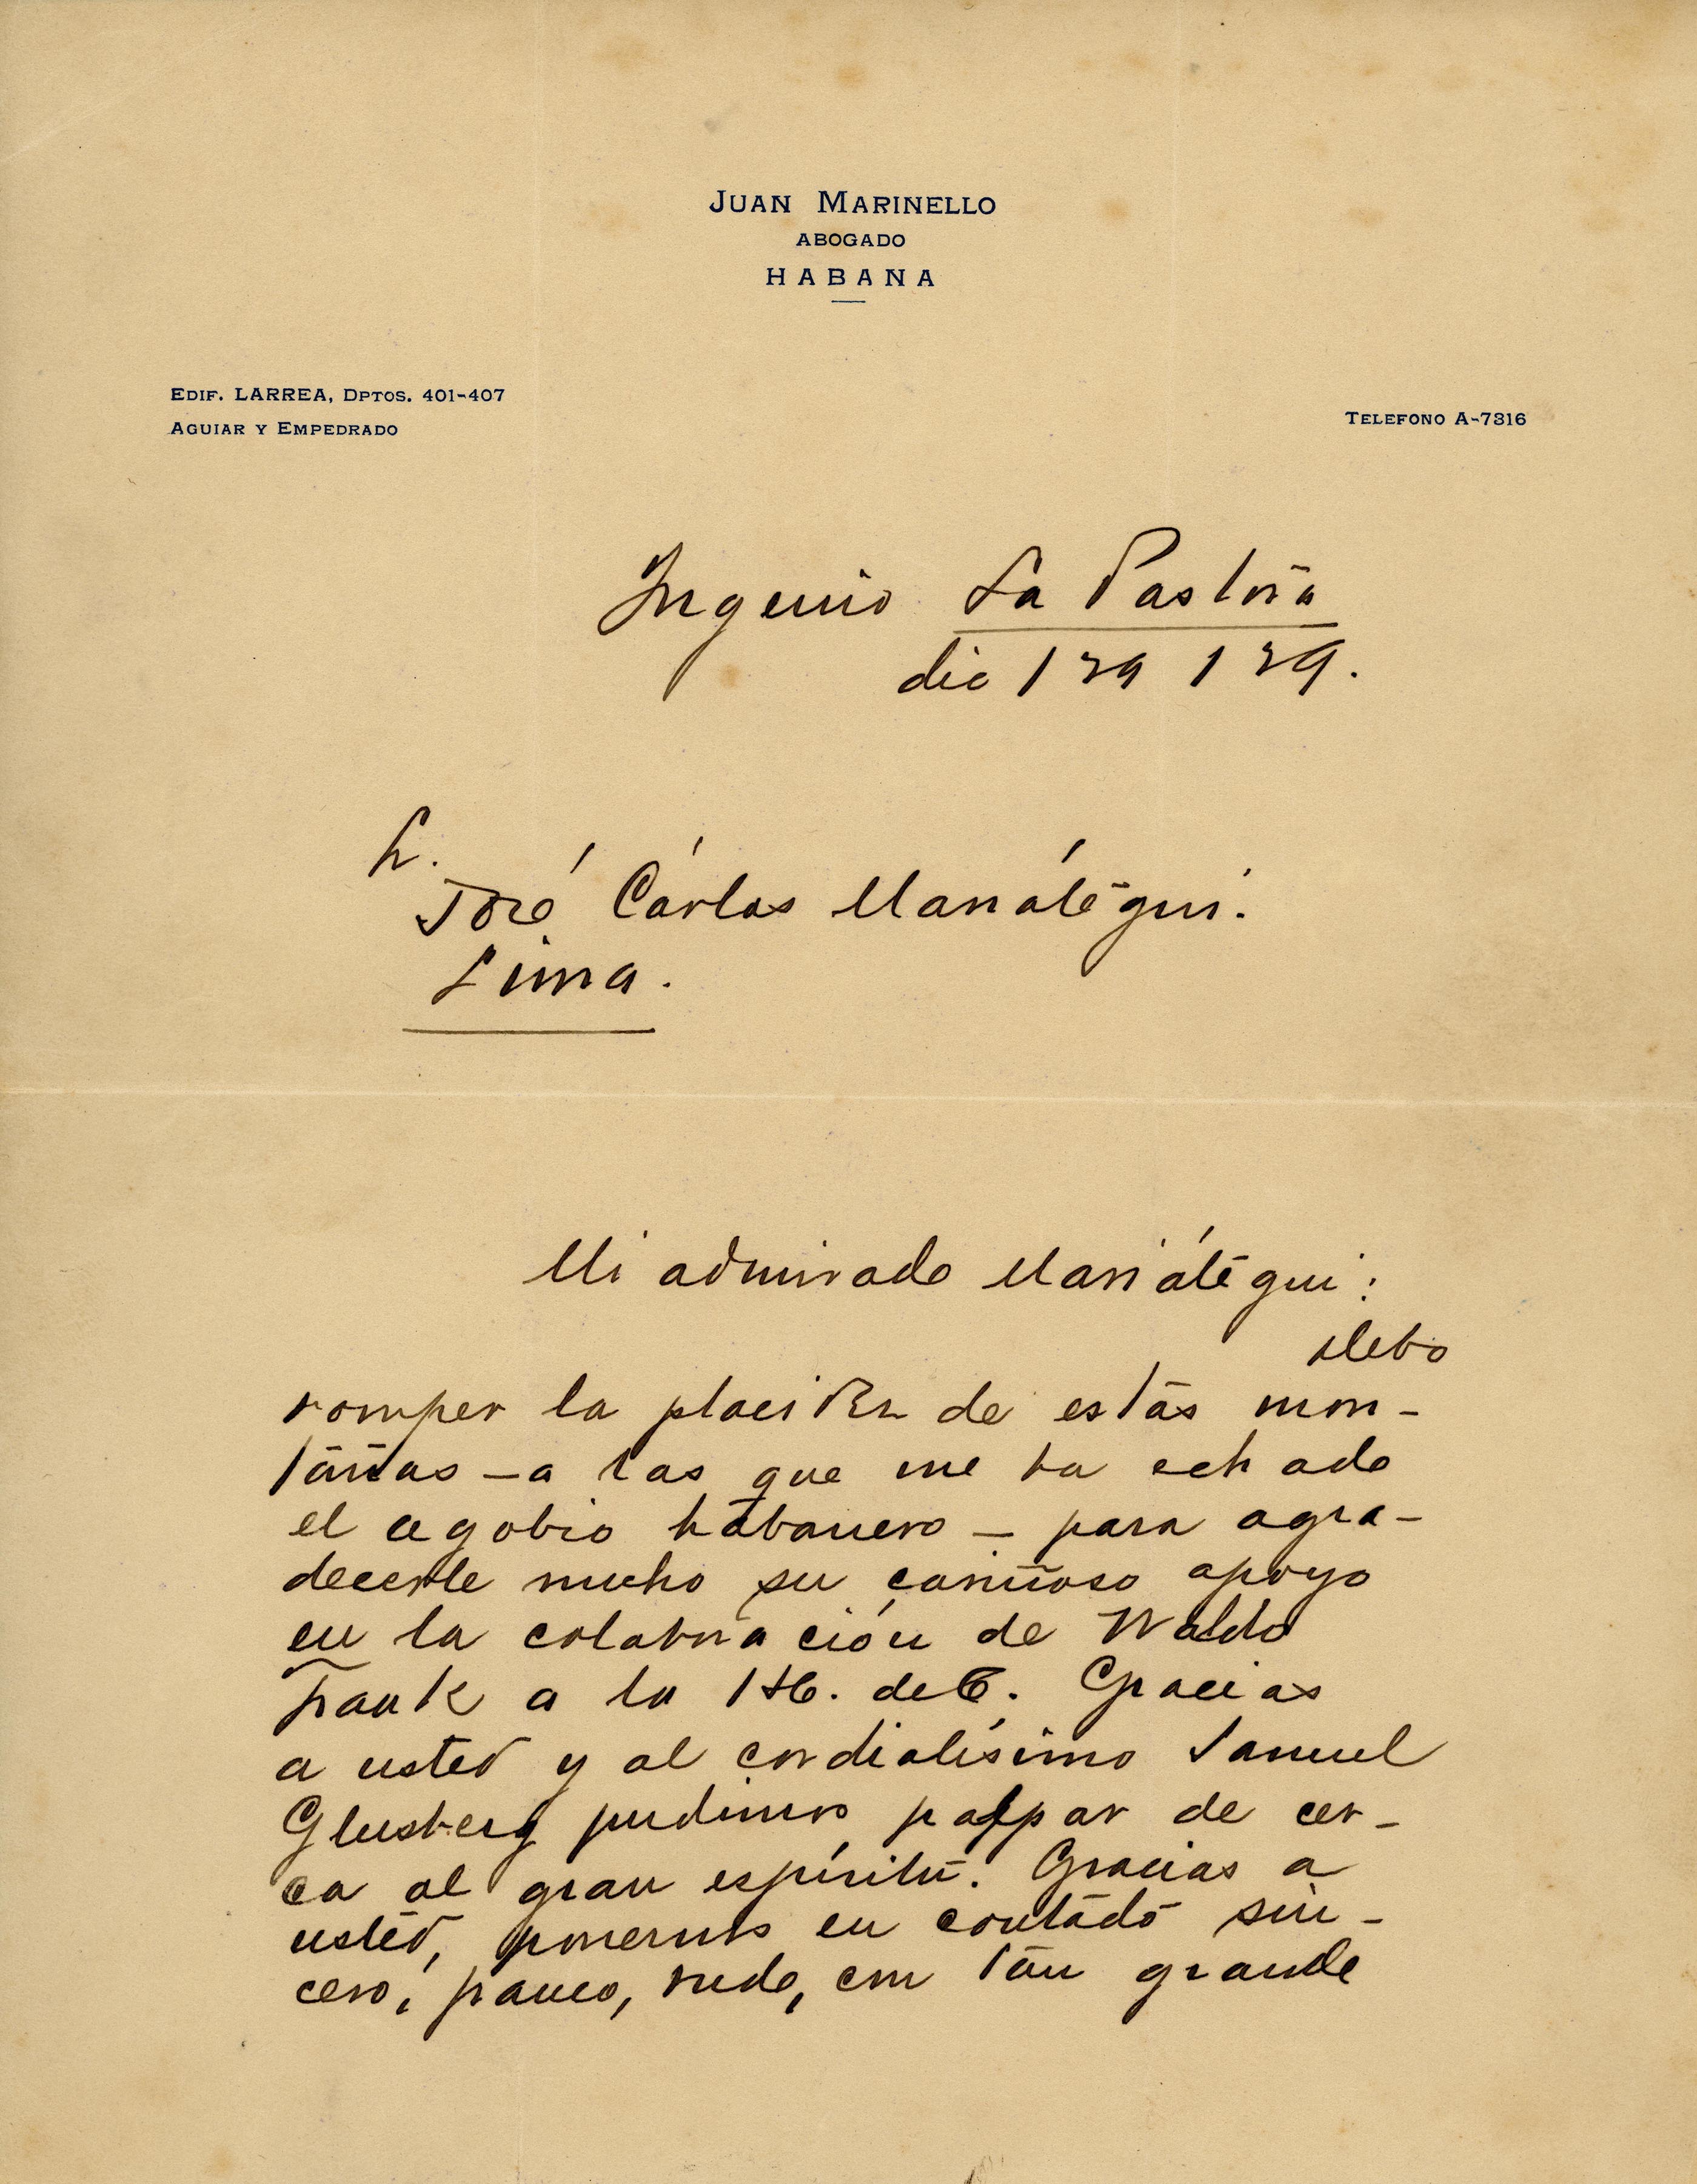 JUAN MARINELLO
ABOGADO
HABANA
EDIF. LARREA, DPTOS. 401-407
AGUIAR Y EMPEDRADO
TELEFONO A-7316
Ingenio La Pastora
dic / 29 / 29.
Sr.
José Cárlos Mariátegui.
Lima.
Mi admirado Mariátegui:
debo
romper la placidez de estas mon-
tañas - a las que me ha echado
el agobio habanero - para agra-
decerle mucho su cariñoso apoyo
en la colaboración de Waldo
Frank a la de C. Gracias
a usted y al cordialísimo Samuel
Glusberg pudimos palpar de cer-
ca al gran espíritu. Gracias a
usted, ponernos en contacto sin-
cero, franco, rudo, con tan grande